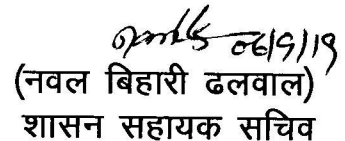 06/9/19
(नवल बिहारी ढलवाल)
शासन सहायक सचिव